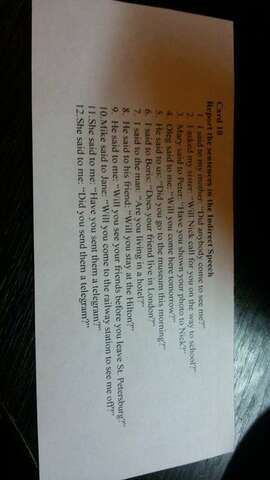 Card 18
Report the sentences in the Indirect Speech
1. I said to my mother: "Did anybody come to see me?"
2. I asked my sister: "Will Nick call for you on the way to school?"
3. Mary said to Peter: "Have you shown your photo to Nick?"
4. Oleg said to me: "Will you come here tomorrow?"
5. He said to us: "Did you go to the museum this morning?"
6. I said to Boris: "Does your friend live in London?"
7. I said to the man: "Are you living in a hotel?"
8. He said to his friend: "Will you stay at the Hilton?"
9. He said to me: "Will you see your friends before you leave St. Petersburg?"
10.Mike said to Jane: "Will you come to the railway station to see me off?"
11.She said to me: "Have you sent them a telegram?"
12.She said to me: "Did you send them a telegram?"